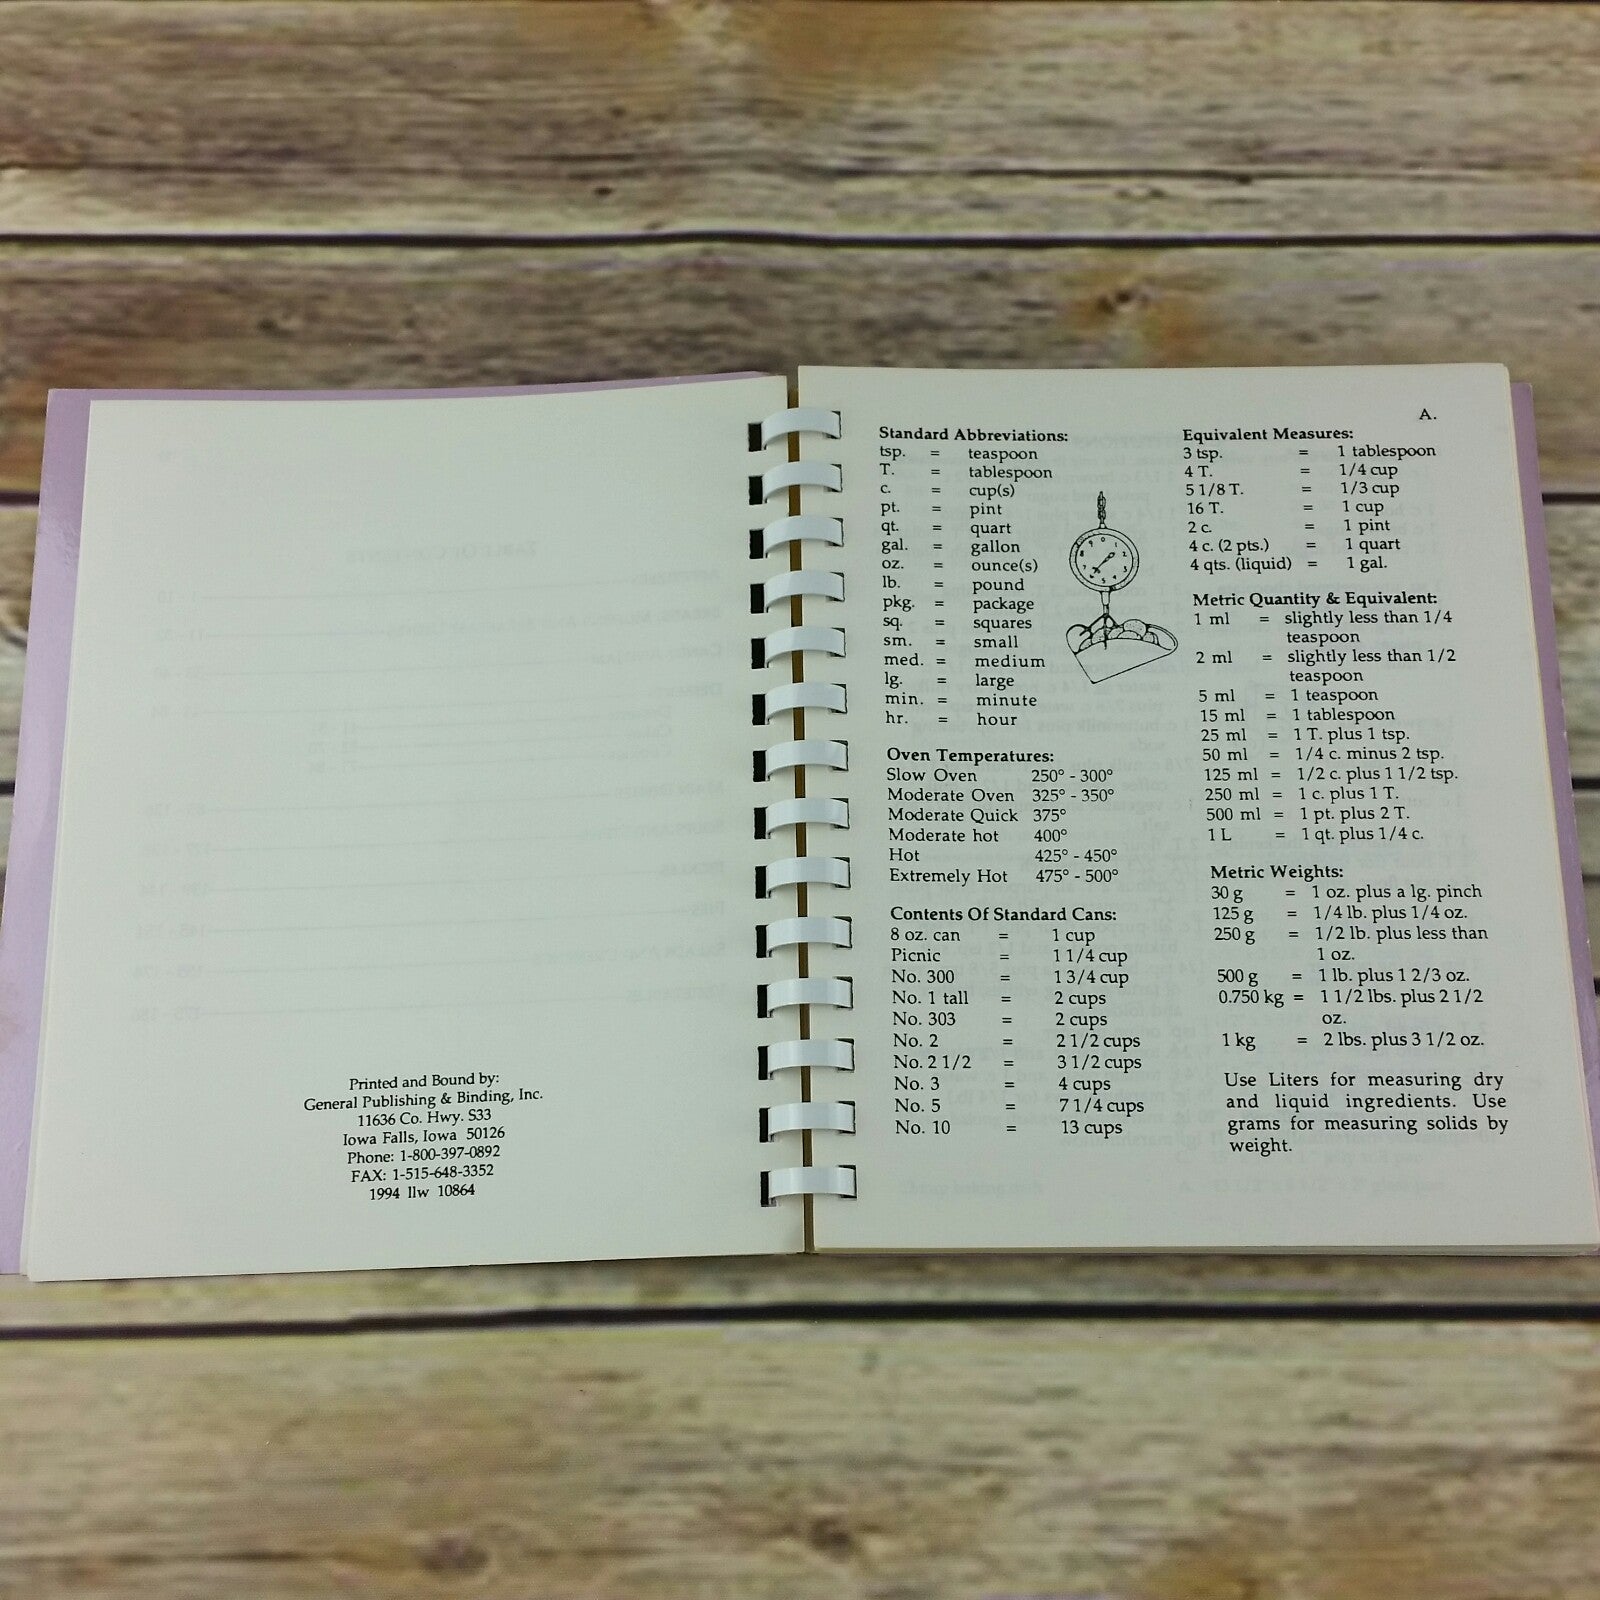 Printed and Bound by:
General Publishing & Binding, Inc.
11636 Co. Hwy. S33
Iowa Falls, Iowa 50126
Phone: 1-800-397-0892
FAX: 1-515-648-3352
1994 llw 10864
A.
Standard Abbreviations:
tsp. = teaspoon
T. = tablespoon
c. = cup(s)
pt. = pint
qt. = quart
gal. = gallon
oz. = ounce(s)
lb. = pound
pkg. = package
sq. = squares
sm. = small
med. = medium
lg. = large
min. = minute
hr. = hour
Oven Temperatures:
Slow Oven 250° - 300°
Moderate Oven 325° - 350°
Moderate Quick 375°
Moderate hot 400°
Hot 425° - 450°
Extremely Hot 475° - 500°
Contents Of Standard Cans:
8 oz. can = 1 cup
Picnic = 1 1/4 cup
No. 300 = 1 3/4 cup
No. 1 tall = 2 cups
No. 303 = 2 cups
No. 2 = 2 1/2 cups
No. 2 1/2 = 3 1/2 cups
No. 3 = 4 cups
No. 5 = 7 1/4 cups
No. 10 = 13 cups
Equivalent Measures:
3 tsp. = 1 tablespoon
4 T. = 1/4 cup
5 1/8 T. = 1/3 cup
16 T. = 1 cup
2 c. = 1 pint
4 c. (2 pts.) = 1 quart
4 qts. (liquid) = 1 gal.
Metric Quantity & Equivalent:
1 ml = slightly less than 1/4
teaspoon
2 ml = slightly less than 1/2
teaspoon
5 ml = 1 teaspoon
15 ml = 1 tablespoon
25 ml = 1 T. plus 1 tsp.
50 ml = 1/4 c. minus 2 tsp.
125 ml = 1/2 c. plus 1 1/2 tsp.
250 ml = 1 c. plus 1 T.
500 ml = 1 pt. plus 2 T.
1 L = 1 qt. plus 1/4 c.
Metric Weights:
30 g = 1 oz. plus a lg. pinch
125 g = 1/4 lb. plus 1/4 oz.
250 g = 1/2 lb. plus less than
1 oz.
500 g = 1 lb. plus 1 2/3 oz.
0.750 kg = 1 1/2 lbs. plus 2 1/2
oz.
1 kg = 2 lbs. plus 3 1/2 oz.
Use Liters for measuring dry
and liquid ingredients. Use
grams for measuring solids by
weight.